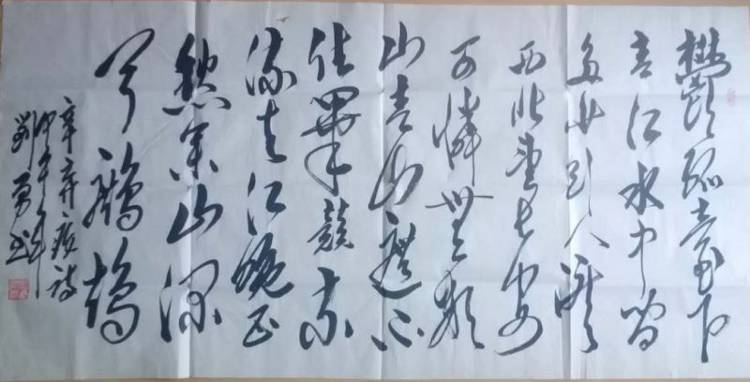 鬱孤臺下
清江水中間
多少行人淚
西北望長安
可憐無數
山青山遮不
住畢競东
流去江晚正
愁余山深
闻鷓鴣
辛弃疾詩
甲午年
劉勇书